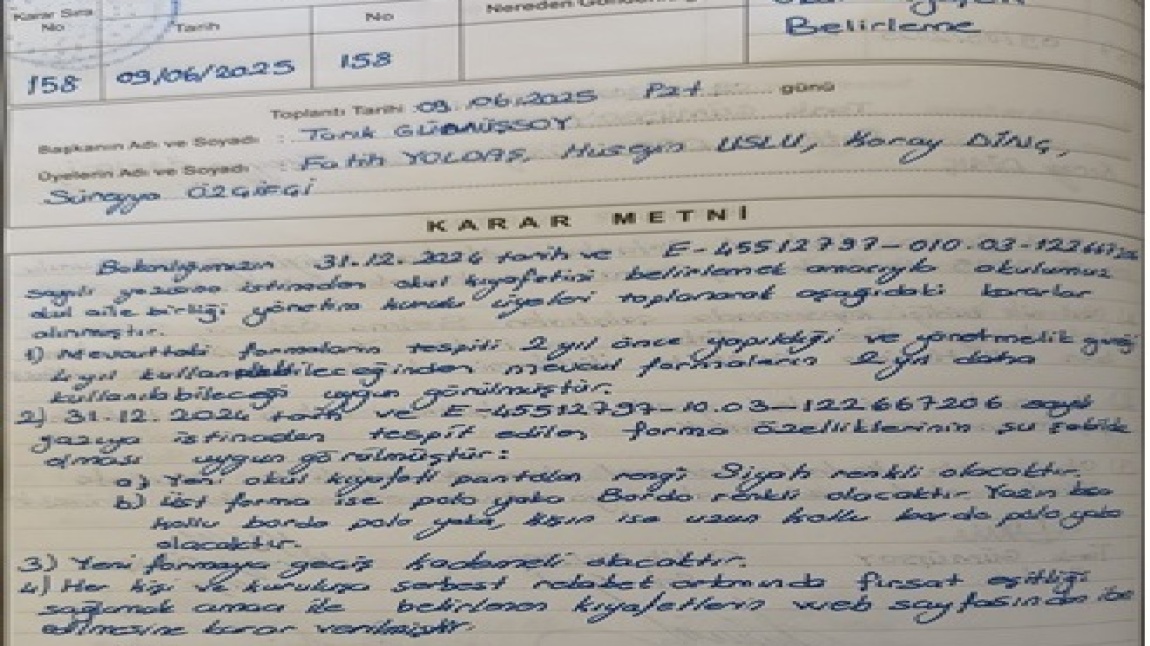 Karar Sıra No Tarih No Nereden
Belirleme
158 09/06/2025 158
Toplantı Tarihi 09.06.2025 Pzt günü
Başkanın Adı ve Soyadı : Tarık GÜMÜŞSOY
Üyelerin Adı ve Soyadı : Fatih YOLDAŞ, Hüseyin USLU, Koray DİNÇ,
Süreyya ÖZÇİFÇİ
KARAR METNİ
Bakanlığımızın 31.12.2024 tarih ve E-45512797-010.03-122667206
sayılı yazısına istinaden okul kıyafetini belirlemek amacıyla okulumuz
okul aile birliği yönetim kurulu üyeleri toplanarak aşağıdaki kararlar
alınmıştır.
1) Mevcuttaki formaların tespiti 2 yıl önce yapıldığı ve yönetmelik gereği
4 yıl mevcut formaların 2 yıl daha
kullanılabileceği uygun görülmüştür.
2) 31.12.2024 tarih ve E-45512797-10.03-122667206 sayılı
yazıya istinaden tespit edilen forma özelliklerinin şu şekilde
olması uygun görülmüştür:
a) Yeni okul kıyafeti pantolon rengi Siyah renkli olacaktır.
b) Üst forma ise polo yaka Bordo renkli olacaktır. Yazın kısa
kollu bordo polo yaka, kışın ise uzun kollu bordo polo yaka
olacaktır.
3) Yeni formaya geçiş kademeli olacaktır.
4) Her kişi ve kuruluşa serbest rekabet ortamında fırsat eşitliği
sağlamak amacı ile belirlenen kıyafetlerin web sayfasından
edilmesine karar verilmiştir.